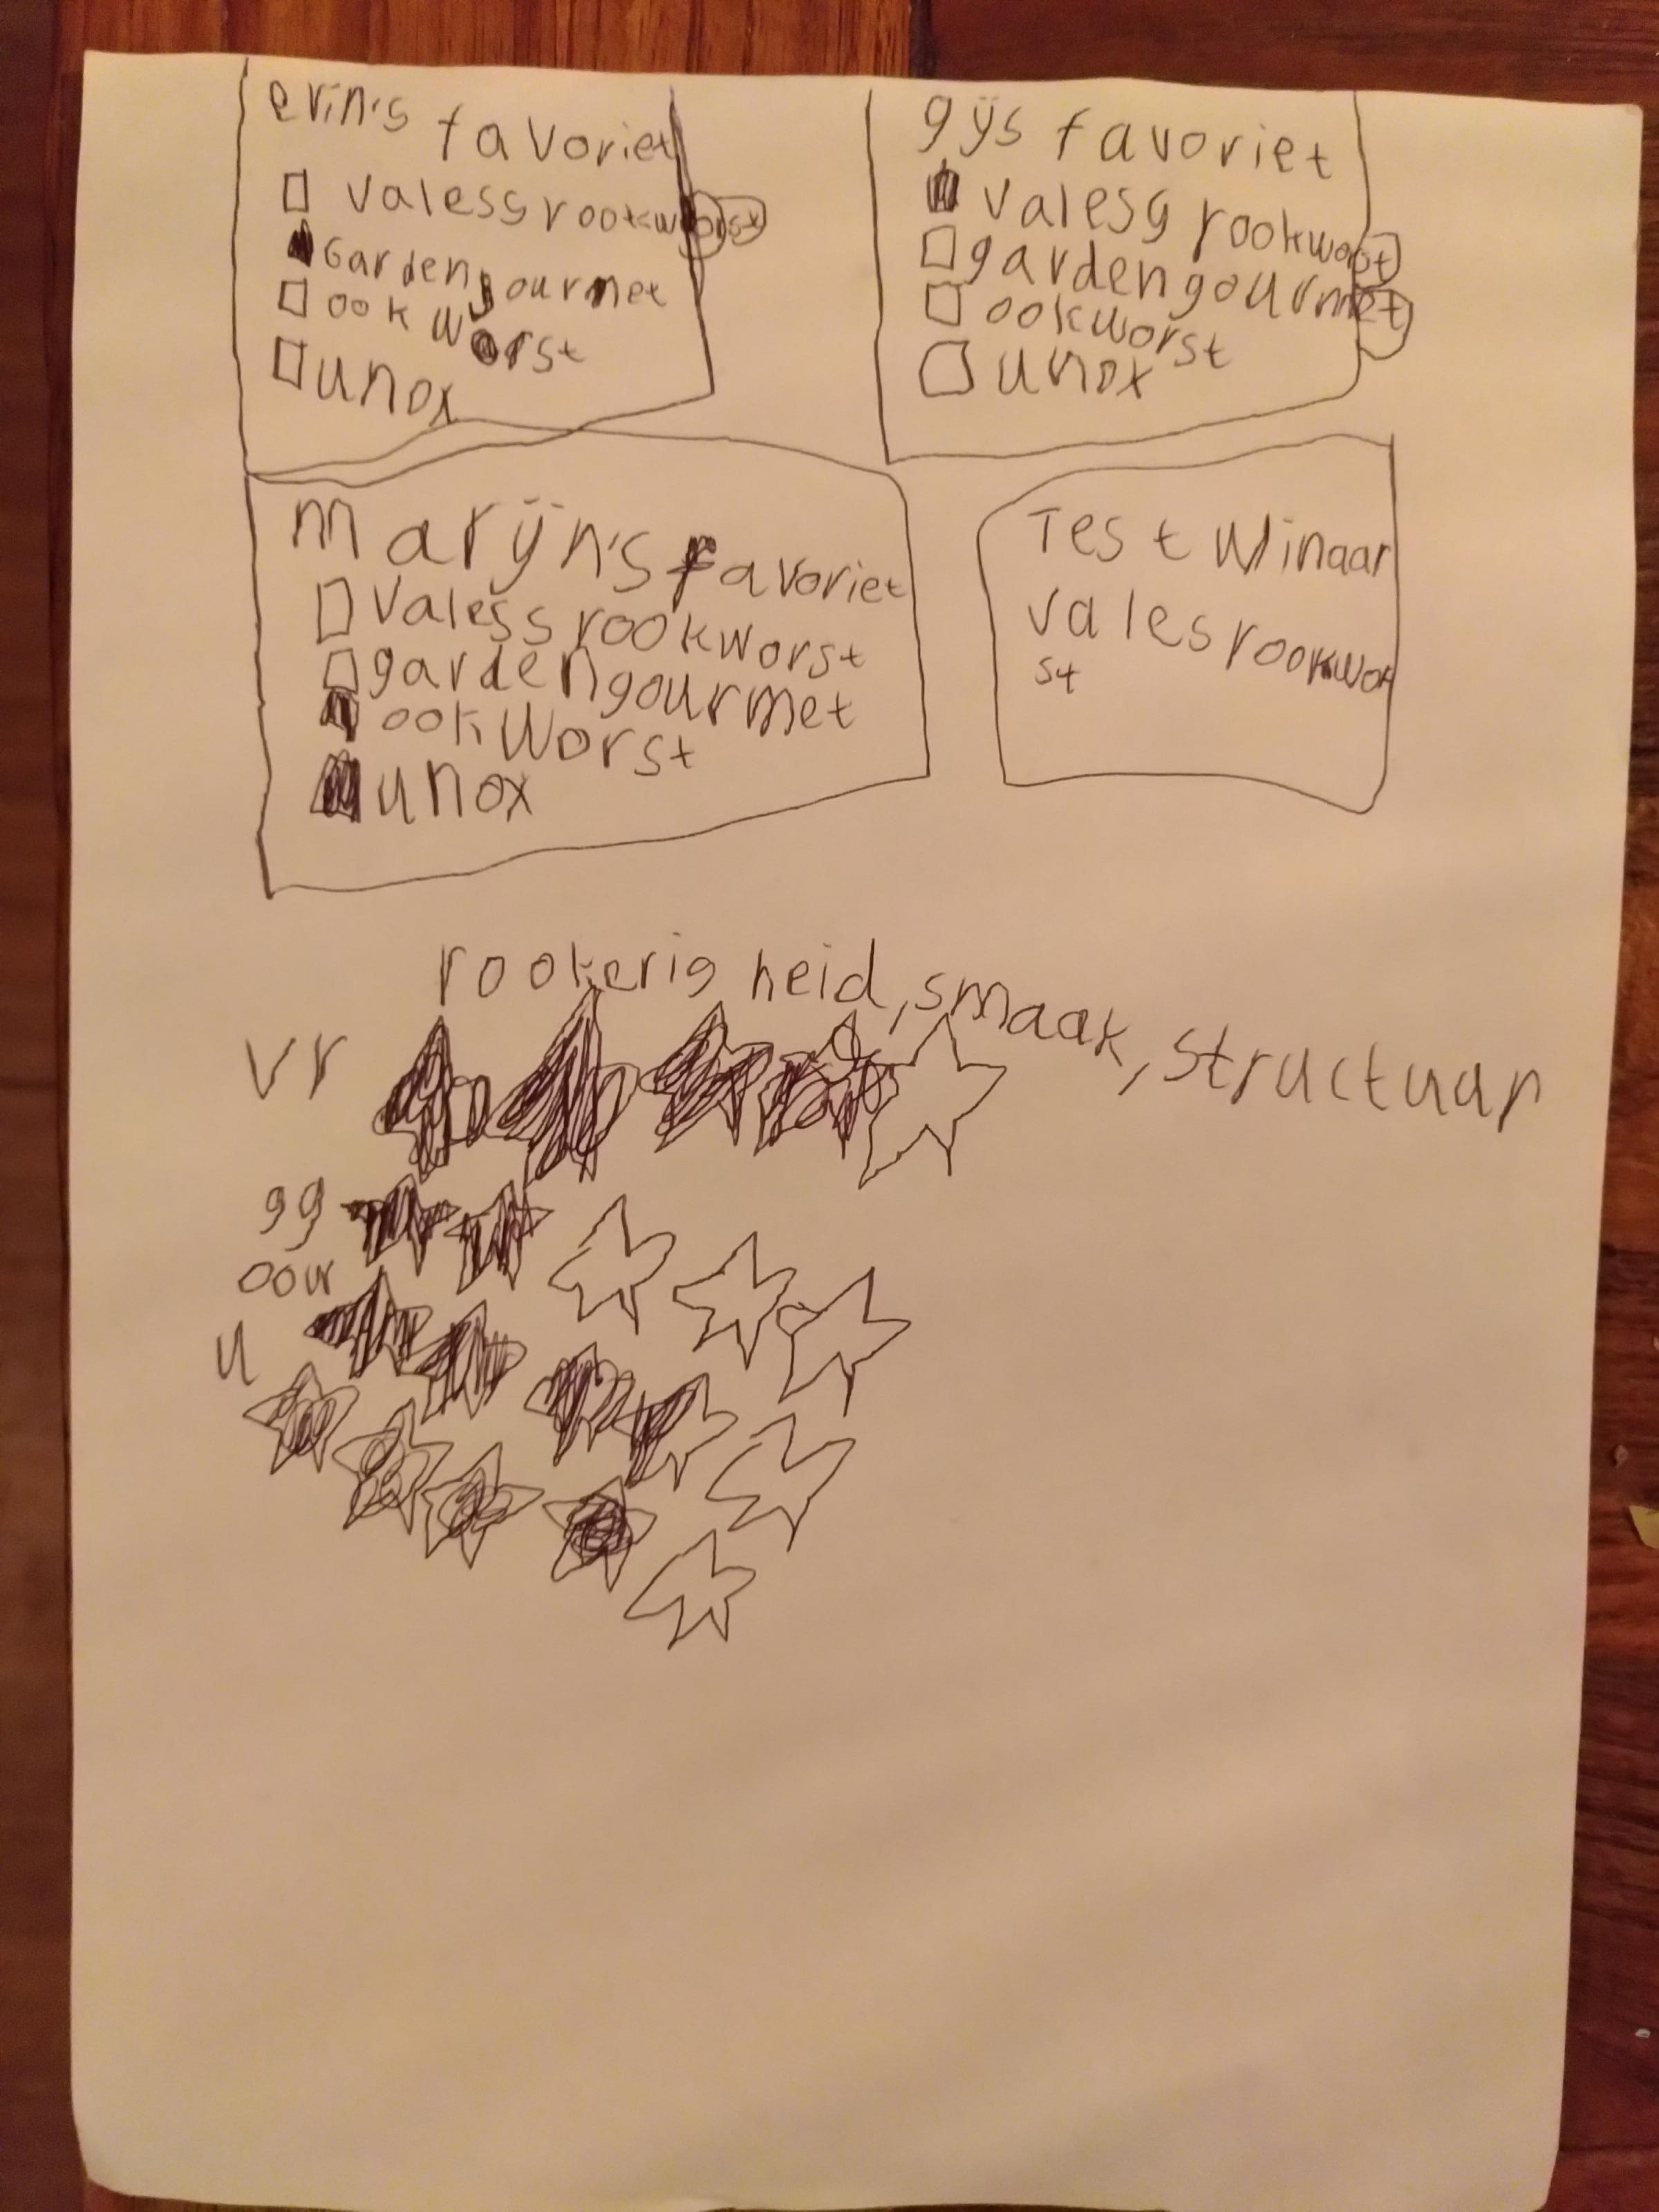 erin's favoriet
valess rookworst
Gardengourmet
ookworst
unox
gijs favoriet
valess rookworst
gardengourmet
ookworst
unox
marijn's favoriet
Valess rookworst
gardengourmet
ookworst
unox
Test winaar
vales rookwor
st
rookerig heid, smaak, structuur
vr
gg
oow
u